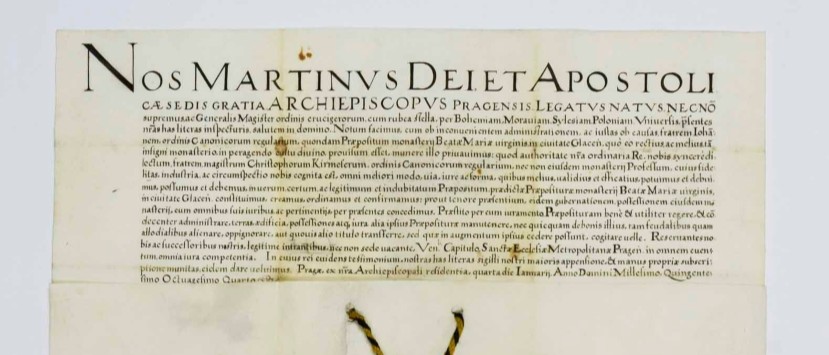 NOS MARTINVS DEI. ET APOSTOLI
CÆ SEDIS GRATIA ARCHIEPISCOPVS PRAGENSIS. LEGATVS NATVS. NECNÕ
supremus ac Generalis Magister ordinis crucigerorum. cum rubea stella. per Bohemiam, Morauiam, Sylesiam, Poloniam. Vniuersis, p̃sentes
nr̃as has literas inspecturis, salutem in domino. Notum facimus, cum ob inconuenientem administrationem, ac iustas ob causas, fratrem Iohã
nem, ordinis Canonicorum regularium, quondam Præpositum monasterij Beatæ Mariæ virginis, in ciuitate Glacen̄, quò eo rectius, ac melius tã
insigni monasterio, in peragendo diuino, prouisum esset, munere illo priuauimus: quod authoritate nr̃a ordinaria Re. nobis syncerè di
lectum, fratrem, magistrum Christophorum Kirmeserum, ordinis Canonicorum regularium, nec non eiusdem monasterij Professum, cuius fide
litas, industria, ac circumspectio nobis cognita est, omni meliori modo, uia, iure ac forma, quibus melius, ualidius et efficatius, potuimus et debui
mus, possumus et debemus, in uerum, certum, ac legitimum et indubitatum Præpositum, prædictæ Præposituræ monasterij Beatæ Mariæ virginis,
in ciuitate Glacen̄, constituimus, creamus, ordinamus et confirmamus: prout tenore præsentium, eidem gubernationem, possessionem eiusdem mo
nasterij, cum omnibus suis iuribus ac pertinentijs, per præsentes concedimus. Præstito per eum iuramento, Præposituram benè & utiliter regere, & cõ
decenter administrare, terras, ædificia, possessiones acq, iura alia ipsius Præposituræ manutenere, nec quicquam de bonis illius, tam feudalibus quam
allodialibus alienare, oppignorare, aut quouis alio titulo transferre, sed quæ in augmentum ipsius cedere possunt, cogitare uelle. Reseruantes no
bis ac successoribus nostris, legitimè intrantibus, nec non sede uacante, Ven: Capitulo, Sanctæ Ecclesiæ Metropolitanæ Pragen̄. in omnem euen
tum, omnia iura competentia. In cuius rei euidens testimonium, nostras has literas sigilli nostri maioris appensione, & manus propriæ subscri
ptione munitas, eidem dare uoluimus. Pragæ, ex nr̃a Archiepiscopali residentia, quarta die Ianuarij, Anno Domini Millesimo, Quingente
simo Octuagesimo Quarto